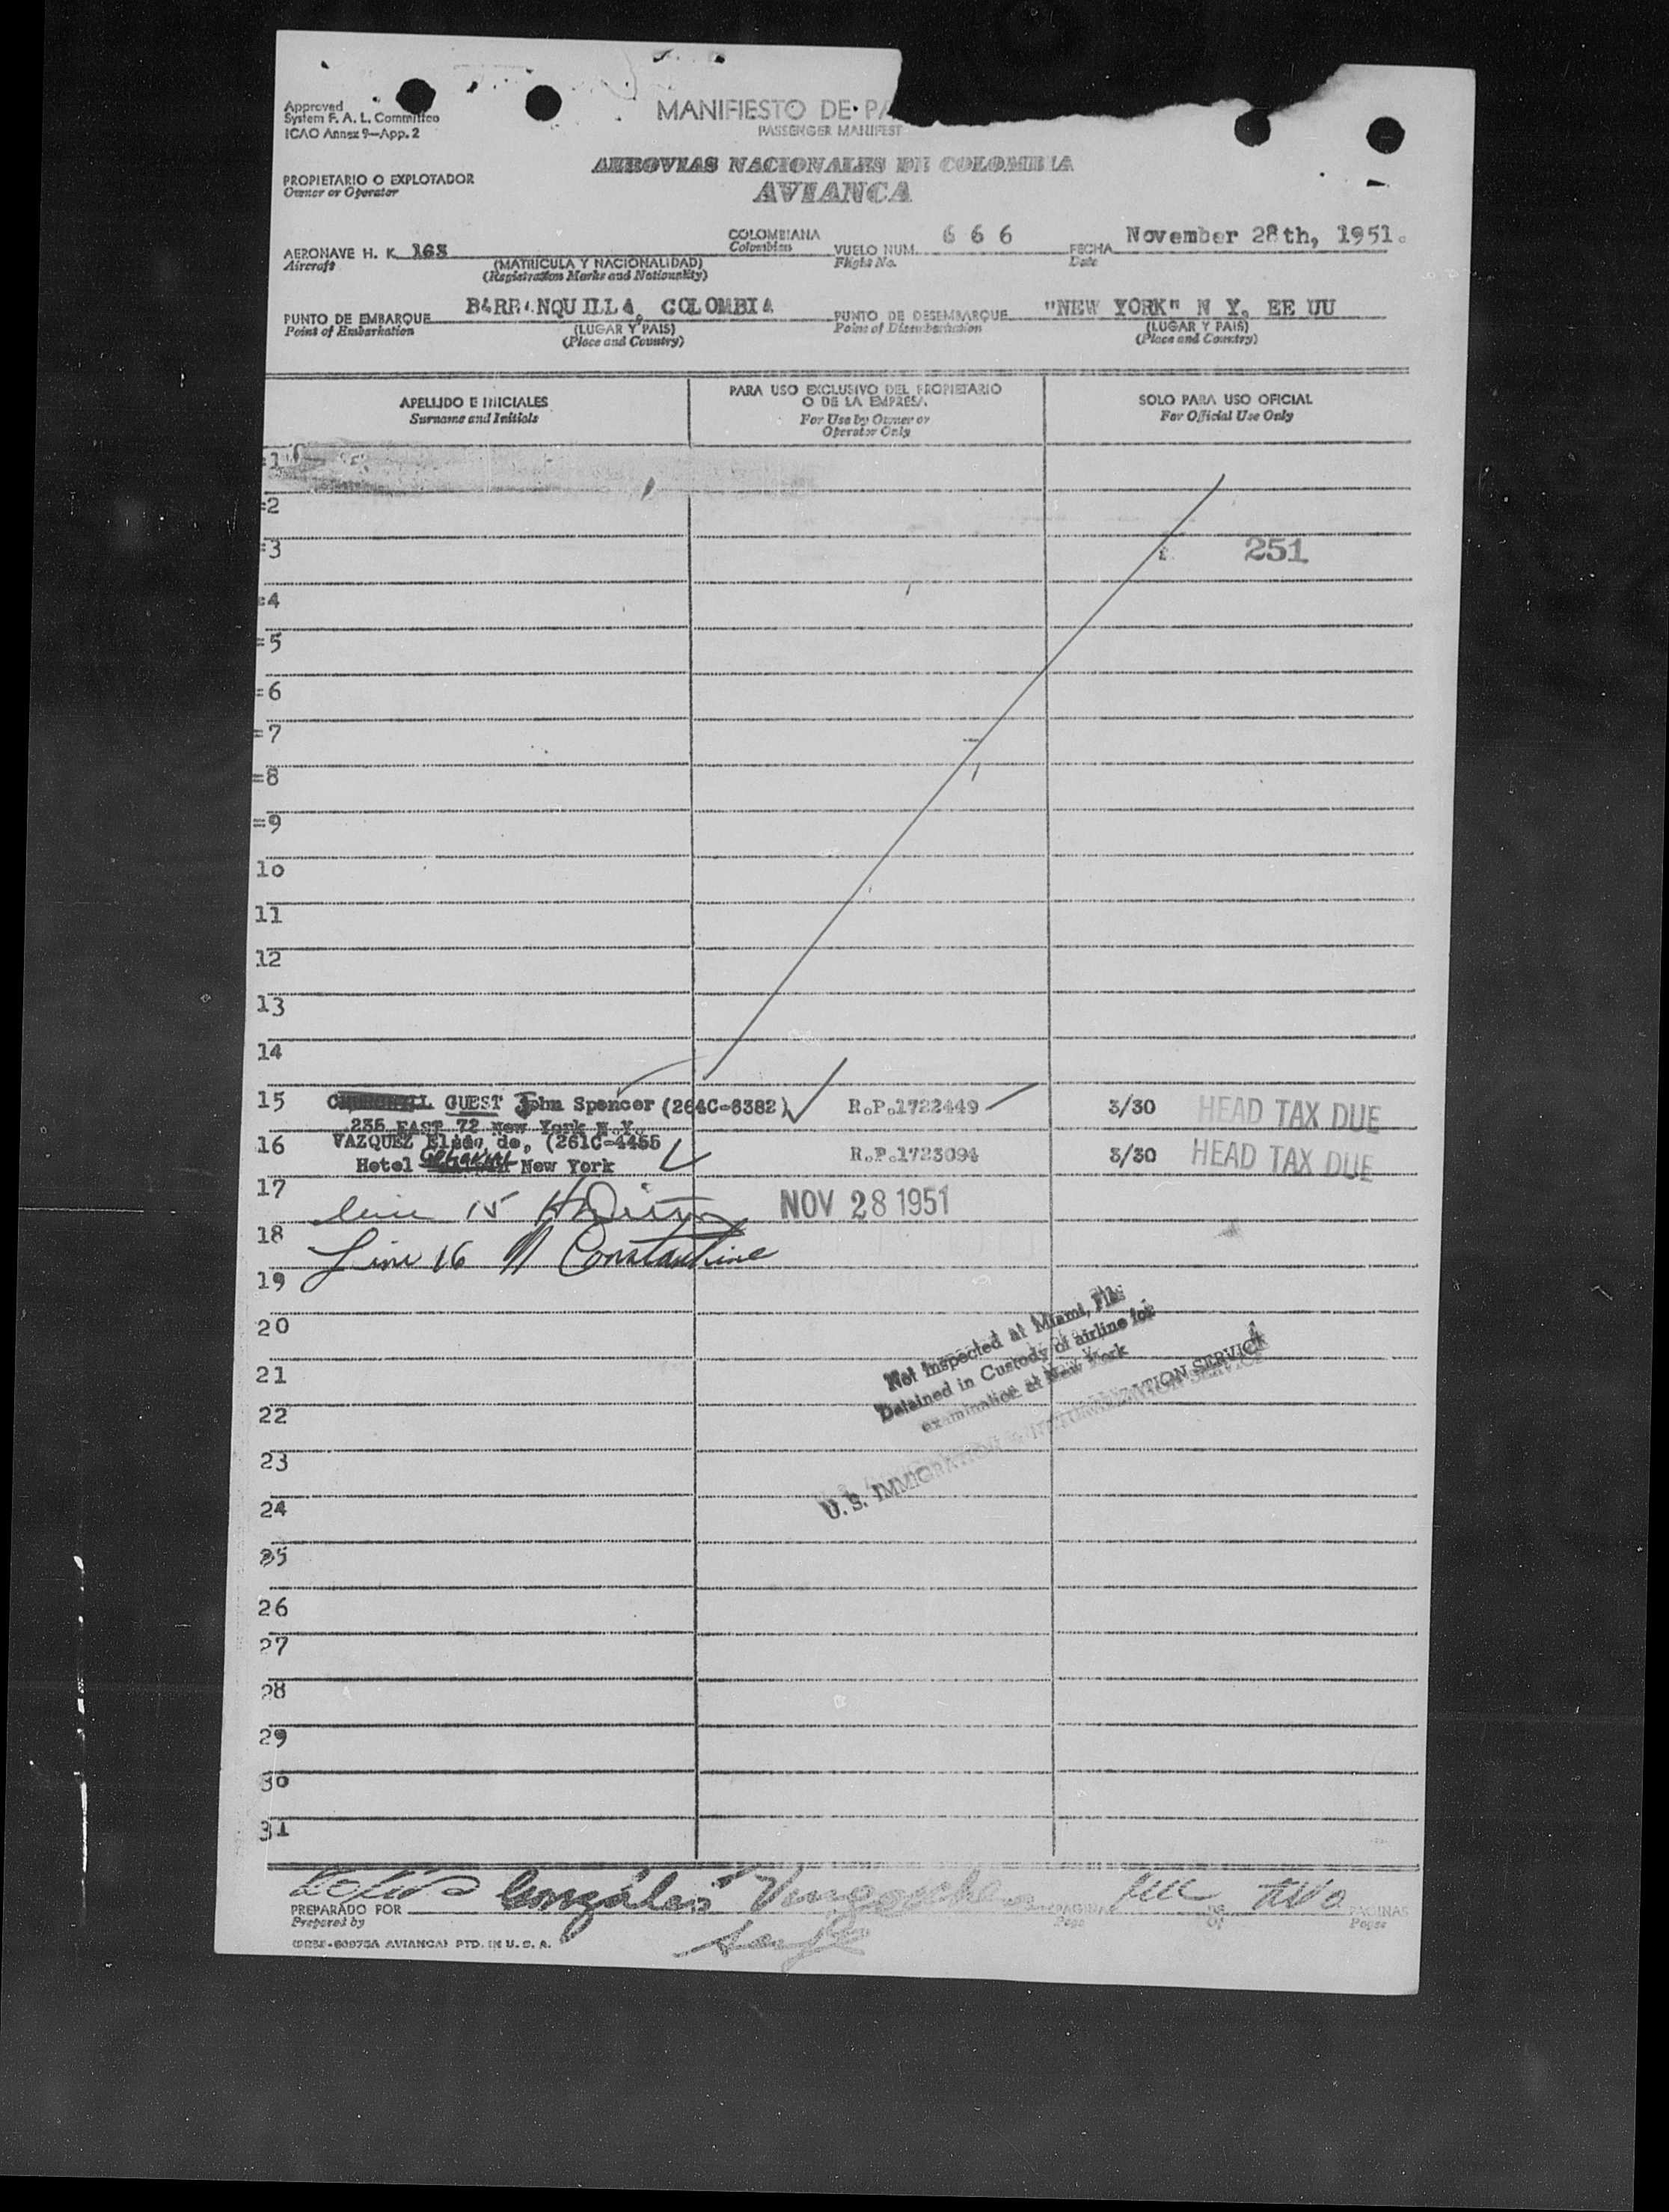 Approved
System F. A. L. Committee
ICAO Annex 9—App. 2
MANIFIESTO DE PA
PASSENGER MANIFEST
AEROVIAS NACIONALES DE COLOMBIA
AVIANCA
PROPIETARIO O EXPLOTADOR
Owner or Operator
AERONAVE H. K. 163
Aircraft
(MATRICULA Y NACIONALIDAD)
(Registration Marks and Nationality)
COLOMBIANA
Colombian
VUELO NUM. 6 6 6
Flight No.
FECHA November 28th, 1951.
Date
PUNTO DE EMBARQUE BARRANQUILLA, COLOMBIA
Point of Embarkation
(LUGAR Y PAIS)
(Place and Country)
PUNTO DE DESEMBARQUE "NEW YORK" N Y. EE UU
Point of Disembarkation
(LUGAR Y PAIS)
(Place and Country)
APELLIDO E INICIALES
Surname and Initials
PARA USO EXCLUSIVO DEL PROPIETARIO
O DE LA EMPRESA
For Use by Owner or
Operator Only
SOLO PARA USO OFICIAL
For Official Use Only
=1
=2
=3 251
=4
=5
=6
=7
=8
=9
10
11
12
13
14
15 GUEST John Spencer (264C-8382) R.P.1722449 3/30 HEAD TAX DUE
235 EAST 72 New York N.Y.
16 VAZQUEZ de, (261C-4455 R.P.1723094 3/30 HEAD TAX DUE
Hotel New York
17 line 15 NOV 28 1951
18 Line 16 N Constantine
19
20
21
22
23
24
25
26
27
28
29
30
31
Not Inspected at Miami, Fla.
Detained in Custody of airline for
examination at New York
U. S. IMMIGRATION & NATURALIZATION SERVICE
PREPARADO POR González
Prepared by
PAGINA DE two PAGINAS
Page Of Pages
AVIANCA) PTD. IN U. S. A.